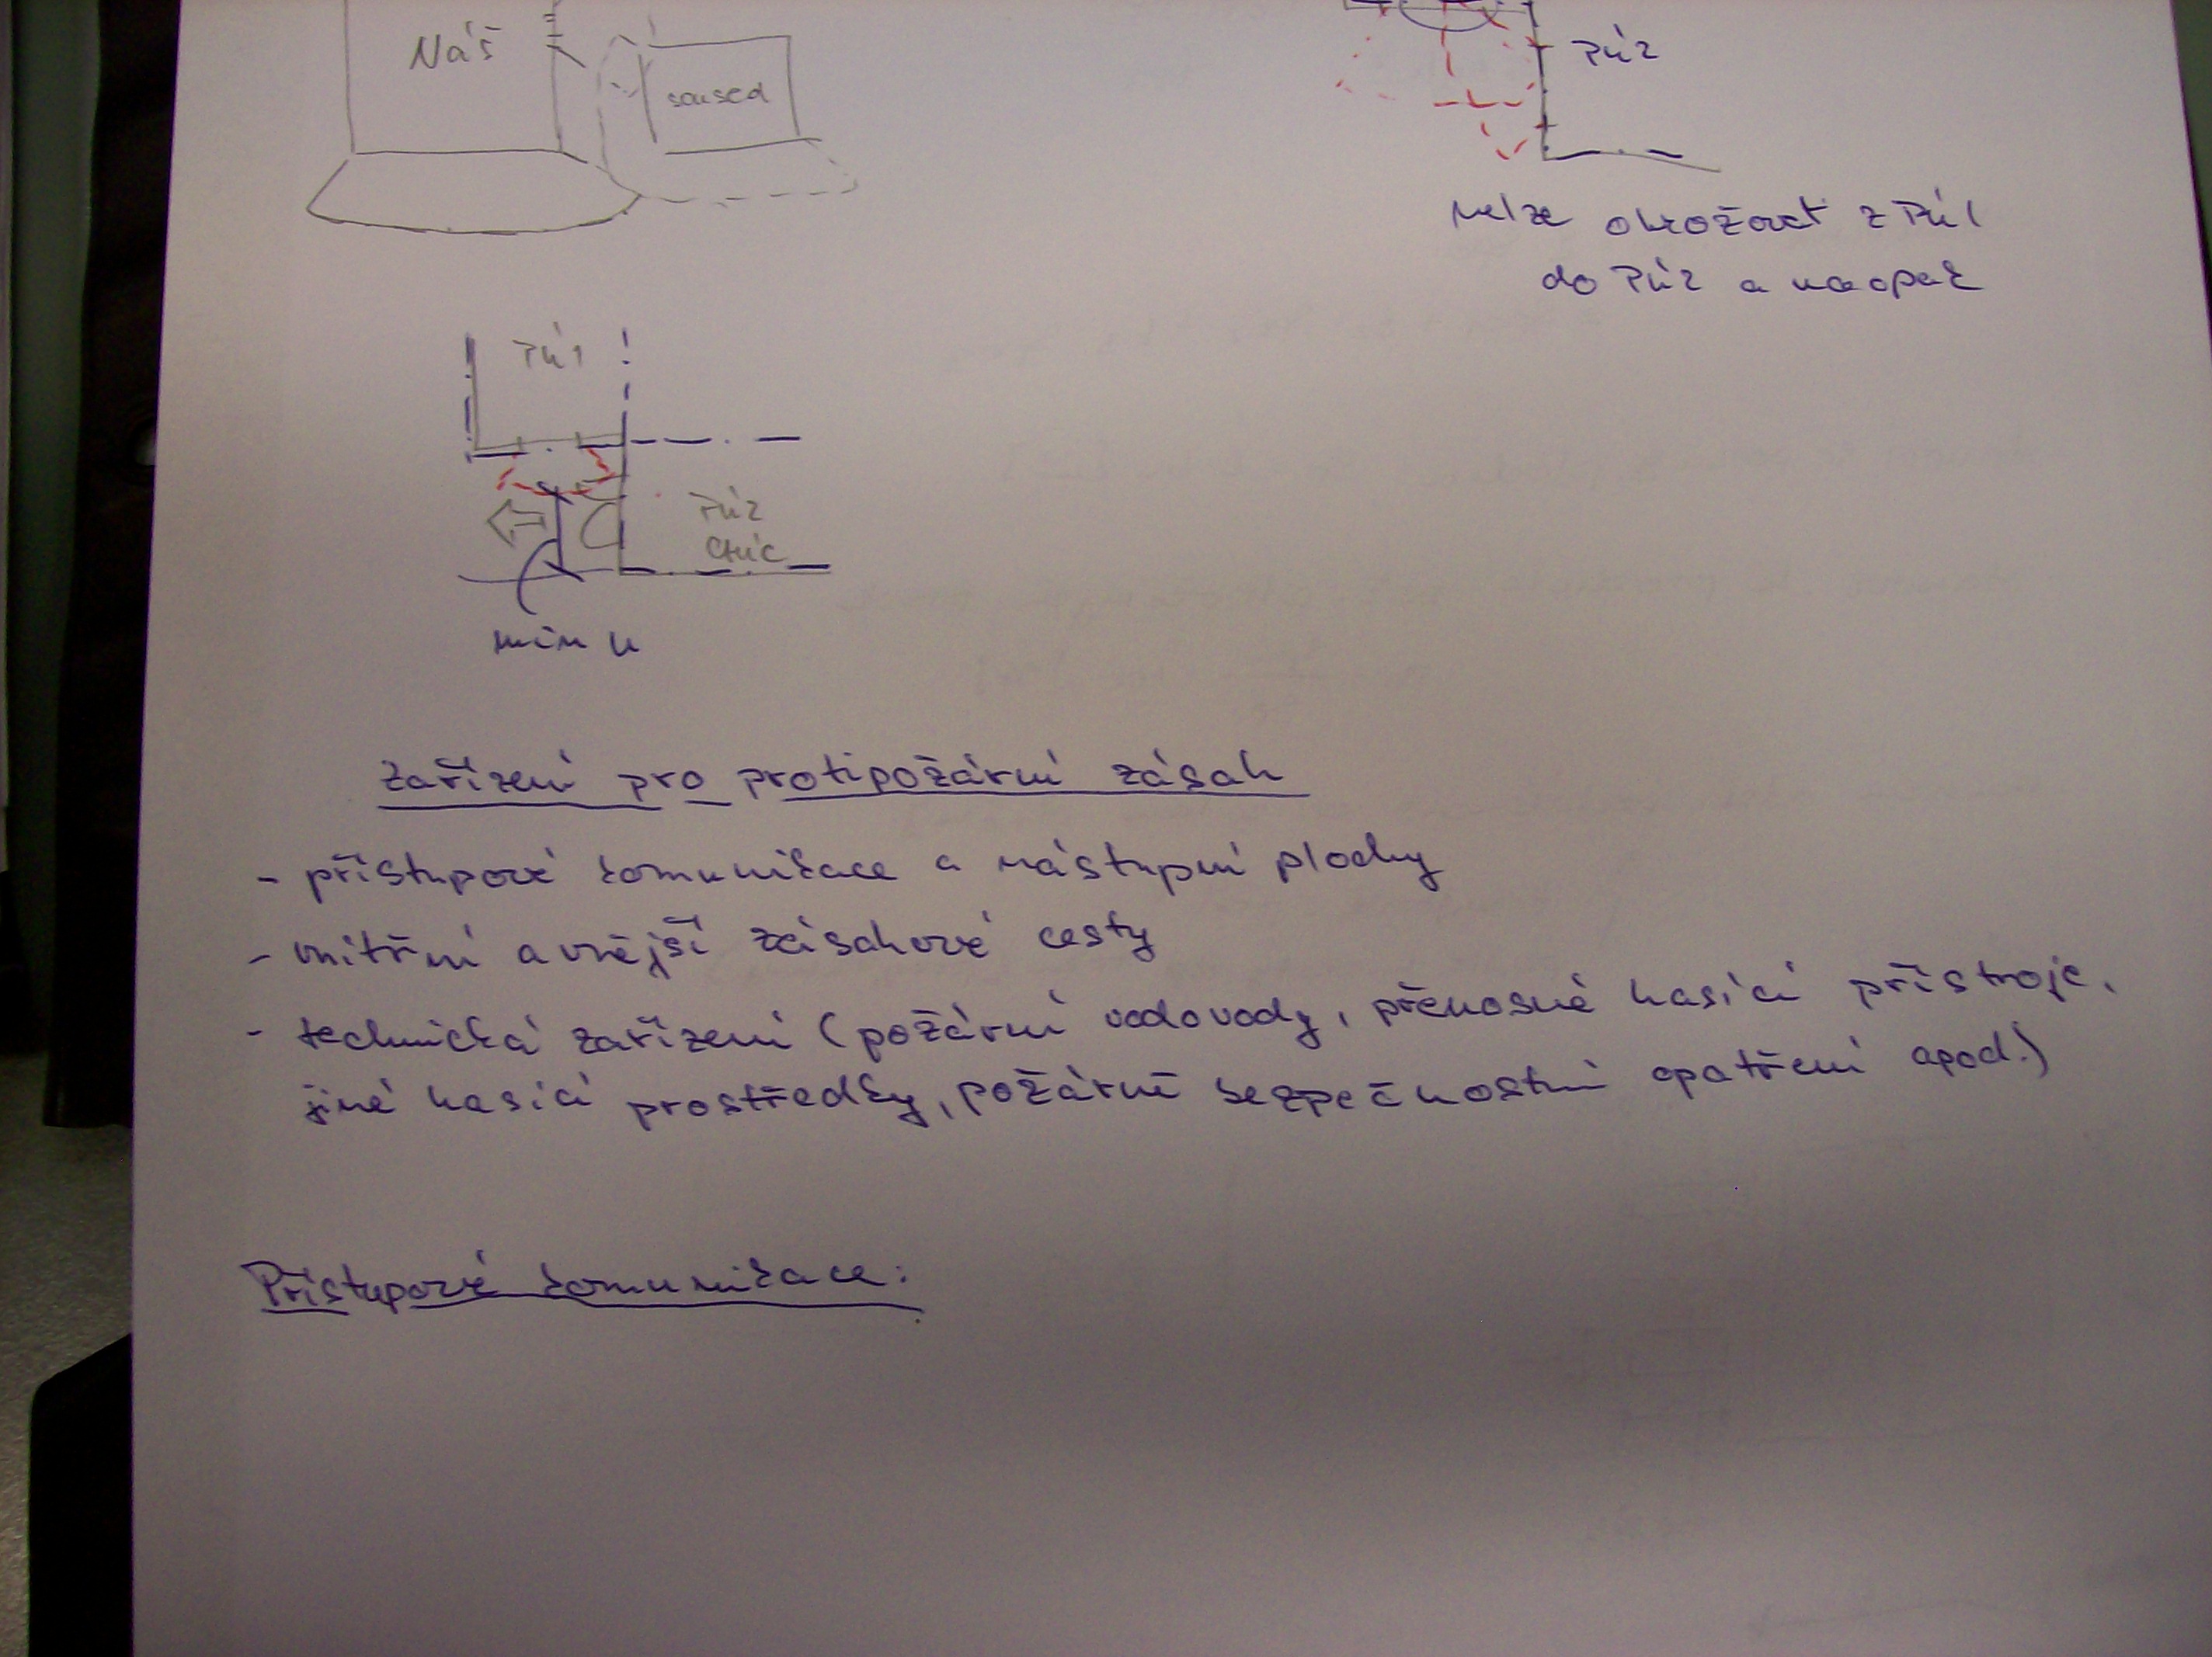 Náš
soused
PÚ2
nelze ohrožovat z PÚ1
do PÚ2 a naopak
PÚ1
PÚ2
CHÚC
min u
Zařízení pro protipožární zásah
- přístupové komunikace a nástupní plochy
- vnitřní a vnější zásahové cesty
- technická zařízení (požární vodovody, přenosné hasící přístroje,
jiné hasící prostředky, požárně bezpečnostní opatření apod.)
Přístupové komunikace: